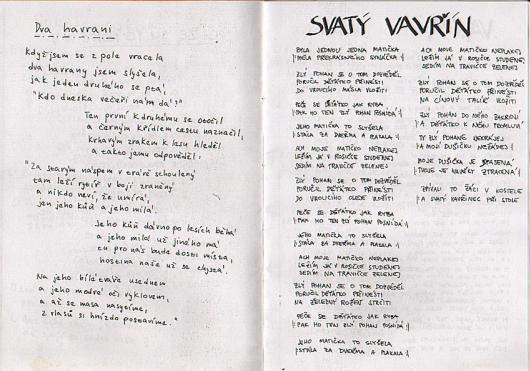 Dva havrani
Když jsem se z pole vracela
dva havrany jsem slyšela,
jak jeden druhého se ptá:
"Kdo dneska večeři nám dá?"
Ten první k druhému se otočil
a černým křídlem cestu naznačil,
krhavým zrakem k lesu hleděl
a takto jemu odpověděl:
"Za starým náspem v trávě schoulený
tam leží rytíř v boji zraněný
a nikdo neví, že umírá,
jen jeho kůň a jeho milá.
Jeho kůň dávno po lesích běhá
a jeho milá už jiného má
tu pro nás bude dosti místa,
hostina naše už se chystá.
Na jeho bílé tváře usednem
a jeho modré oči vyklovem,
a až se masa nasytíme,
z vlasů si hnízdo postavíme."
SVATÝ VAVŘÍN
BYLA JEDNOU JEDNA MATIČKA
|: MĚLA PŘEKRÁSNÉHO SYNÁČKA :|
ZLÝ POHAN SE O TOM DOZVĚDĚL
PORUČIL DĚŤÁTKO PŘINÉSTI
DO VROUCÍHO MASLA VLOŽITI
PEČE SE DĚŤÁTKO JAK RYBA
|: PAK HO TEN ZLÝ POHAN POSNÍDÁ :|
JEHO MATIČKA TO SLYŠELA
|: STÁLA ZA DVEŘMA A PLAKALA :|
ACH MOJE MATIČKO NEPLAKEJ
LEŽÍM JÁ V ROSIČCE STUDENEJ
SEDÍM NA TRAVIČCE ZELENEJ
ZLÝ POHAN SE O TOM DOZVĚDĚL
PORUČIL DĚŤÁTKO PŘINÉSTI
DO VROUCÍHO OLEJE VLOŽITI
PEČE SE DĚŤÁTKO JAK RYBA
|: PAK HO TEN ZLÝ POHAN POSNÍDÁ :|
JEHO MATIČKA TO SLYŠELA
|: STÁLA ZA DVEŘMA A PLAKALA :|
ACH MOJE MATIČKO NEPLAKEJ
LEŽÍM JÁ V ROSIČCE STUDENEJ
SEDÍM NA TRAVIČCE ZELENEJ
ZLÝ POHAN SE O TOM DOZVĚDĚL
PORUČIL DĚŤÁTKO PŘINÉSTI
NA ŽELEZNÝ ROŽEŇ STRČITI
PEČE SE DĚŤÁTKO JAK RYBA
|: PAK HO TEN ZLÝ POHAN POSNÍDÁ :|
JEHO MATIČKA TO SLYŠELA
|: STÁLA ZA DVEŘMA A PLAKALA :|
ACH MOJE MATIČKO NEPLAKEJ
LEŽÍM JÁ V ROSIČCE STUDENEJ
SEDÍM NA TRAVIČCE ZELENEJ
ZLÝ POHAN SE O TOM DOZVĚDĚL
PORUČIL DĚŤÁTKO PŘINÉSTI
NA CÍNOVÝ TALÍŘ VLOŽITI
ZLÝ POHAN DO NĚHO
A DĚŤÁTKO K NĚMU PROMLUVÍ
TY ZLÝ POHANE
A MOJÍ DUŠIČKU NEŽÁDEJ :|
MOJE DUŠIČKA JE SPASENÁ
|: TVOJE JE NAVĚKY ZTRACENÁ :|
ZPÍVAJÍ TO ŽÁCI V KOSTELE
A SVATÝ VAVŘINEC PŘI STOLE